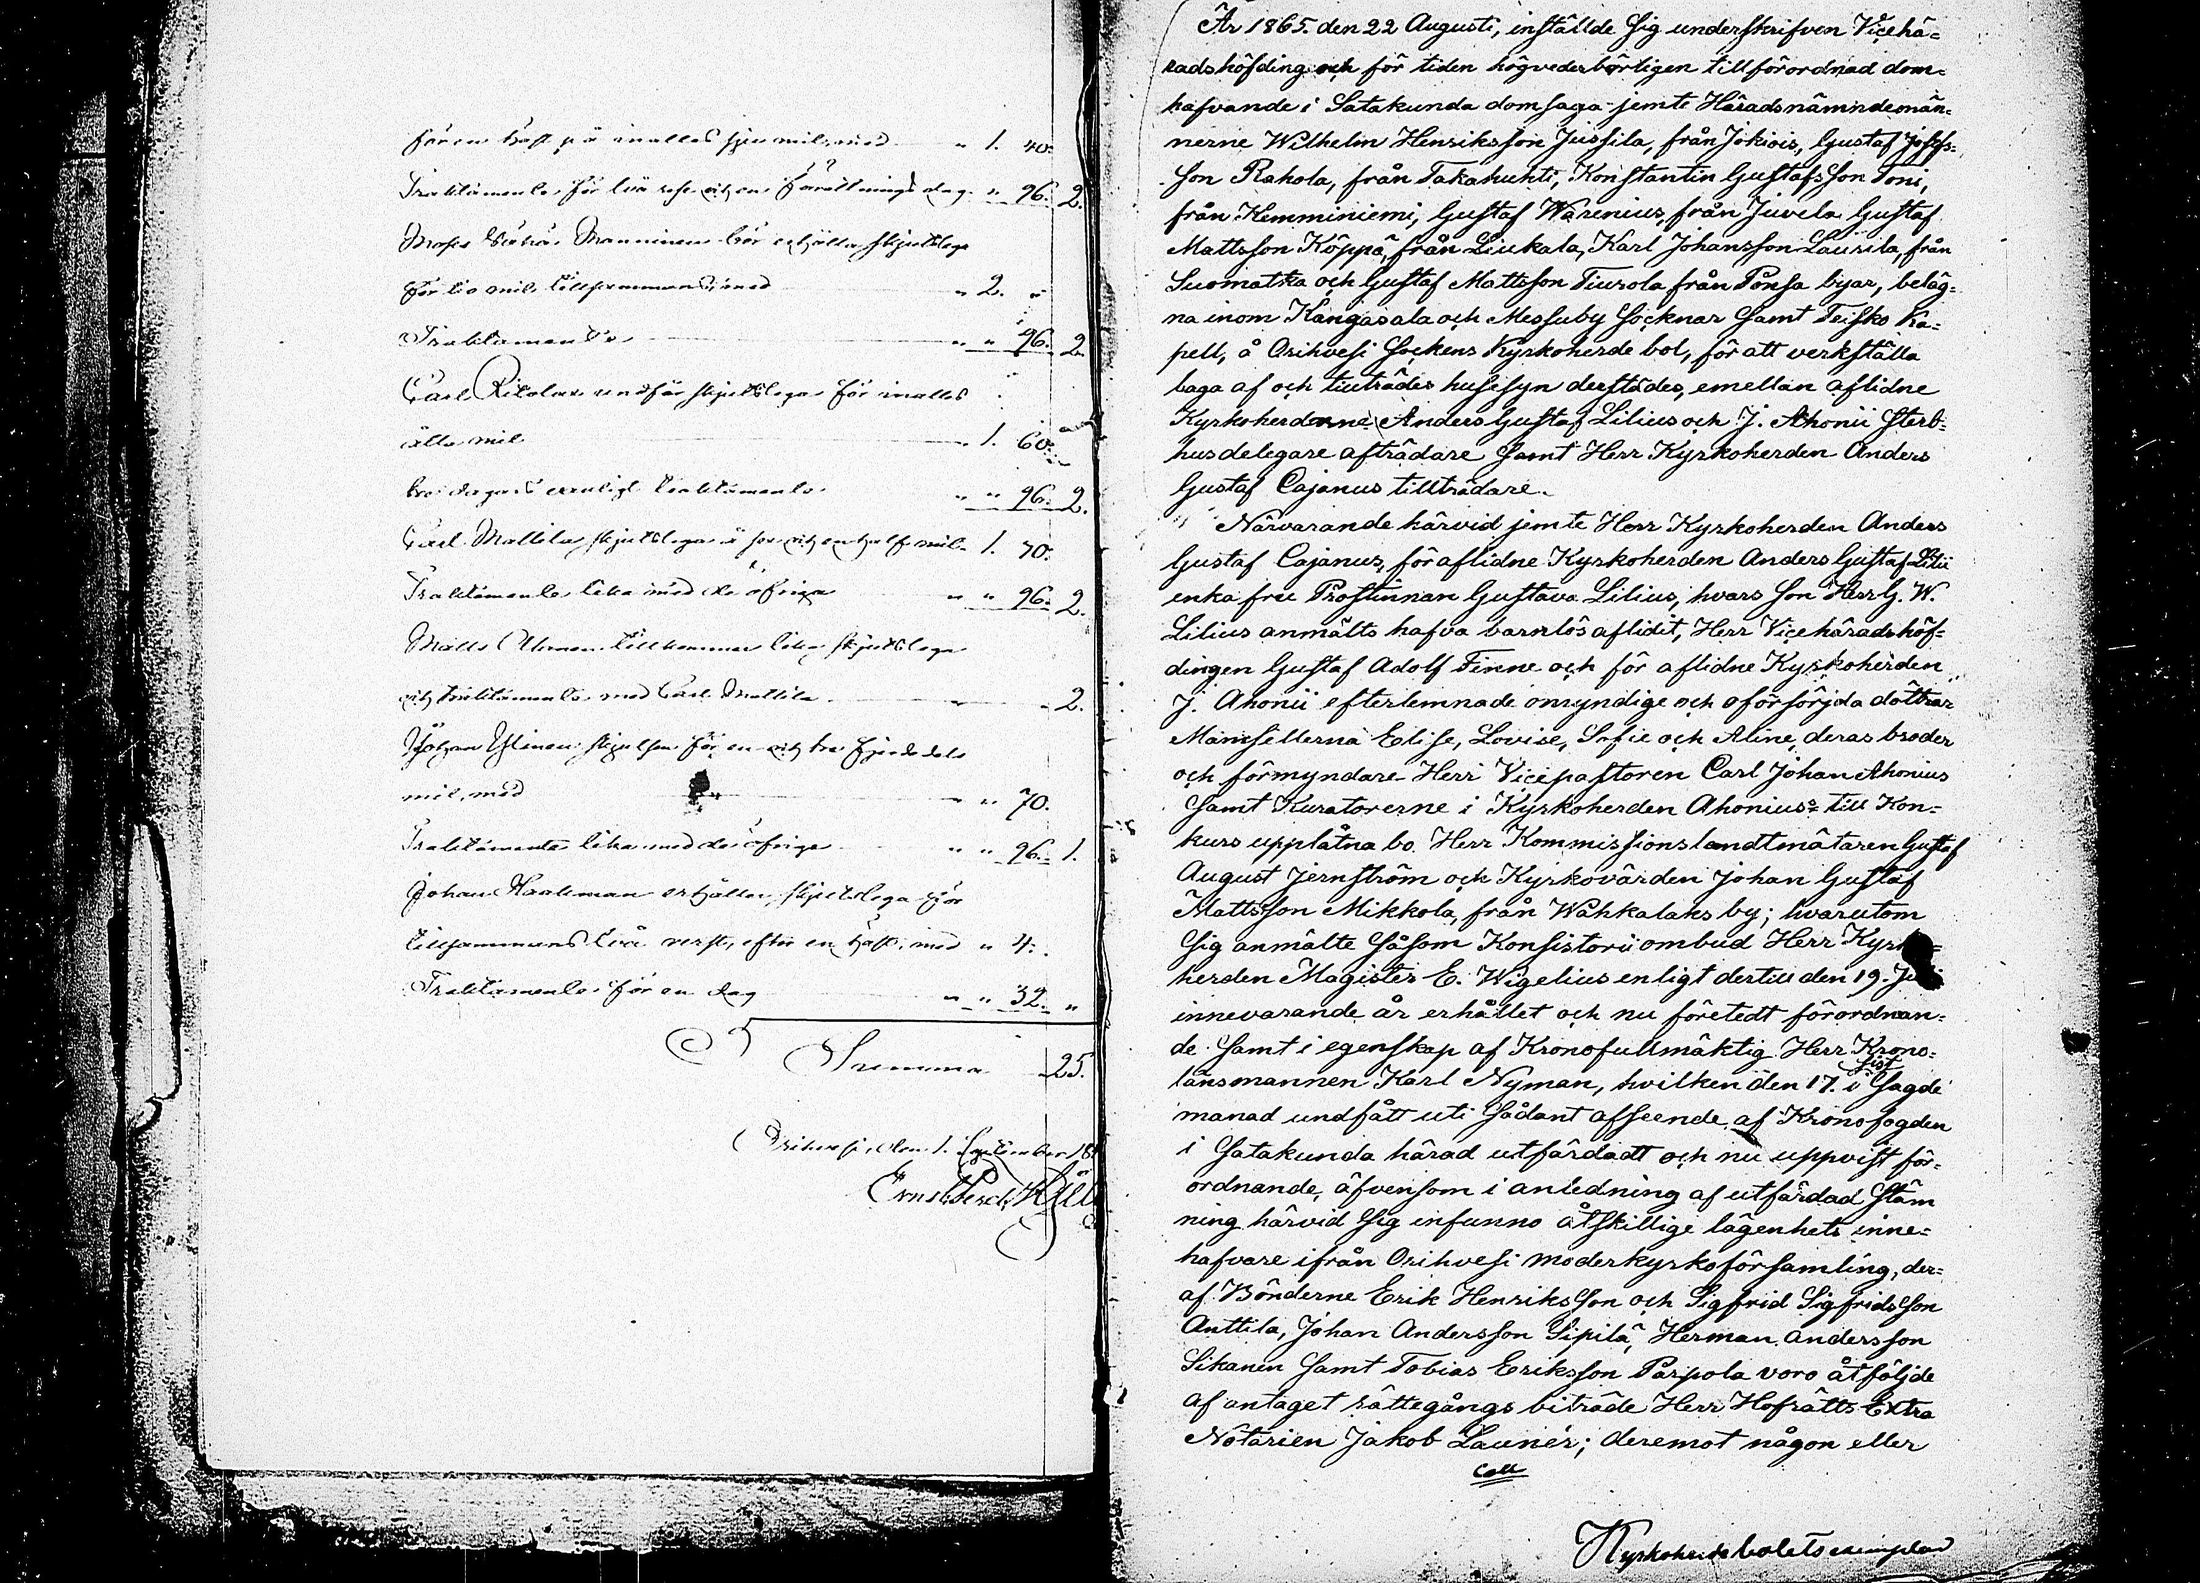 för en häst på inalles sju mil, med " 1. 40.
Traktamente för två rese och en förrättnings dag " 96. 2.
Manninen bör erhålla skjutslega
för tio mil tillsammans, med " 2. "
Traktamente " " 96. 2.
Carl Rikala undfår skjutslega för inalles
åtta mil " 1. 60.
tre dagars vanligt traktamente " " 96. 2.
Carl Mattila skjutslega å sex och en half mil 1. 70.
Traktamente lika med de öfriga " " 96. 2.
Matts tillkommer lika skjutslega
och traktamente med Carl Mattila " 2.
Johan skjutsen för en och tre fjerdedels
mil, med " " 70.
Traktamente lika med de öfriga " " 96. 1.
Johan erhåller skjutslega för
tillsammans två verst, efter en häst, med " 4.
Traktamente för en dag " " 32. "
Summa 25.
Orihvesi, den 1. September 18
Ernst
År 1865. den 22 Augusti, inställde sig underskrifven Vicehä-
radshöfding och för tiden högvederbörligen tillförordnad dom-
hafvande i Satakunda domsaga jemte Häradsnämndemän-
nerne Wilhelm Henriksson Jussila, från Jokiois, Gustaf Josefs-
son Rahola, från Takahuhti, Konstantin Gustafsson Toni,
från Kemminiemi, Gustaf Warenius, från Juvela Gustaf
Mattsson Köppä, från Liukala, Karl Johansson Laurila, från
Suomatka och Gustaf Mattsson Tiurola från Pånsa byar, beläg-
na inom Kangasala och Messuby Socknar samt Teisko Ka-
pell, å Orihvesi Sockens Kyrkoherde bol, för att verkställa
laga af och tillträdes husesyn derstädes, emellan aflidne
Kyrkoherdenne Anders Gustaf Lilius och J. Ahonii sterb-
husdelegare afträdare samt Herr Kyrkoherden Anders
Gustaf Cajanus tillträdare.
Närvarande härvid jemte Herr Kyrkoherden Anders
Gustaf Cajanus, för aflidne Kyrkoherden Anders Gustaf Lilii
enka fru Prostinnan Gustava Lilius, hvars son Herr G. W.
Lilius anmälts hafva barnlös aflidit, Herr Vicehäradshöf-
dingen Gustaf Adolf Finne och för aflidne Kyrkoherden
J. Ahonii efterlemnade omyndige och oförsörjda döttrar
Mamsellerna Elise, Lovise, Sofie och Aline, deras broder
och förmyndare Herr Vicepastoren Carl Johan Ahonius
samt Kuratorerne i Kyrkoherden Ahonius: till Kon-
kurs upplåtna bo. Herr Kommissionslandtmätaren Gustaf
August Jernström och Kyrkovärden Johan Gustaf
Mattsson Mikkola, från Wähkalaks by; hvarutom
sig anmälte såsom Konsistorii ombud Herr
herden Magister E. Wigelius enligt dertill den 19.
innevarande år erhållet och nu företedt förordnan-
de samt i egenskap af Kronofullmäktig Herr Krono-
länsmannen Karl Nyman, hvilken den 17. i sist sagde
manad undfått uti sådant afseende af Kronofogden
i Satakunda härad utfärdadt och nu uppvist för-
ordnande, äfvensom i anledning af utfärdad stäm
ning härvid sig infunno åtskillige lägenhets inne-
hafvare ifrån Orihvesi moderkyrkoförsamling, der-
af Bönderne Erik Henriksson och Sigfrid Sigfridsson
Anttila, Johan Andersson Sipilä, Herman Andersson
Sikanen samt Tobias Eriksson Parpola voro åtföljde
af antaget rättegångs biträde Herr Hofrätts Extra
Notarien Jakob Launér; deremot någon eller
Coll
Kyrkoherdebolets exemplar